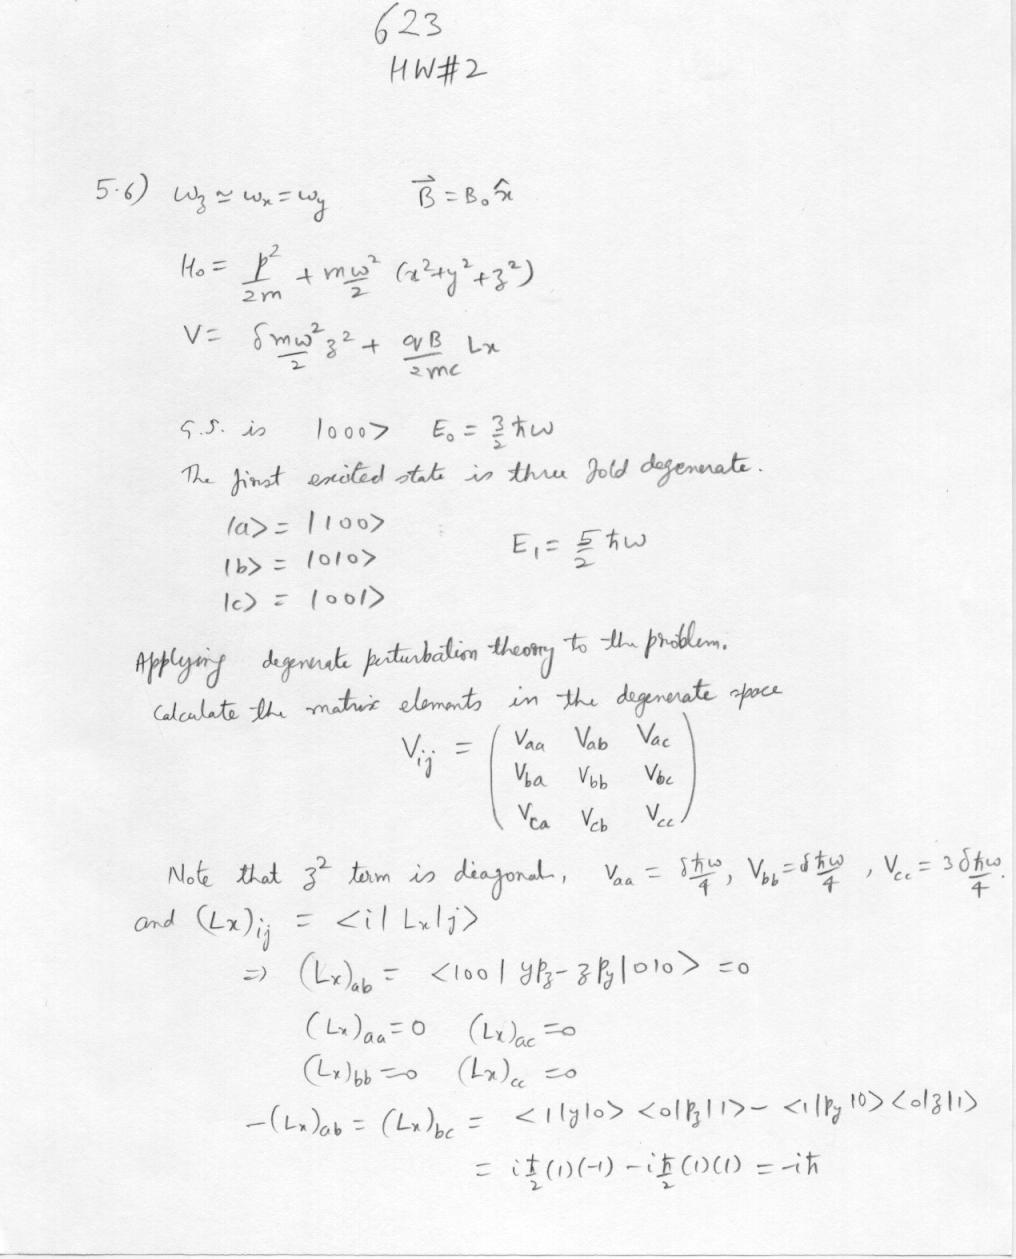 623
HW#2
5.6) ω_z ≃ ω_x = ω_y    B⃗ = B₀ x̂
H₀ = p²/2m + mω²/2 (x²+y²+z²)
V = δ mω²/2 z² + qB/2mc Lx
G.S. is |000> E₀ = 3/2 ħω
The first excited state is three fold degenerate.
|a> = |100>
|b> = |010>    E₁ = 5/2 ħω
|c> = |001>
Applying degenerate perturbation theory to the problem.
Calculate the matrix elements in the degenerate space
V_ij = ( Vaa Vab Vac
Vba Vbb Vbc
Vca Vcb Vcc )
Note that z² term is diagonal, Vaa = δħω/4, Vbb = δħω/4, Vcc = 3δħω/4.
and (Lx)_ij = <i| Lx|j>
⇒ (Lx)ab = <100| yPz - zPy|010> = 0
(Lx)aa = 0 (Lx)ac = 0
(Lx)bb = 0 (Lx)cc = 0
-(Lx)ab = (Lx)bc = <1|y|0> <0|Pz|1> - <1|Py|0> <0|z|1>
= iħ/2 (1)(-1) - iħ/2 (1)(1) = -iħ